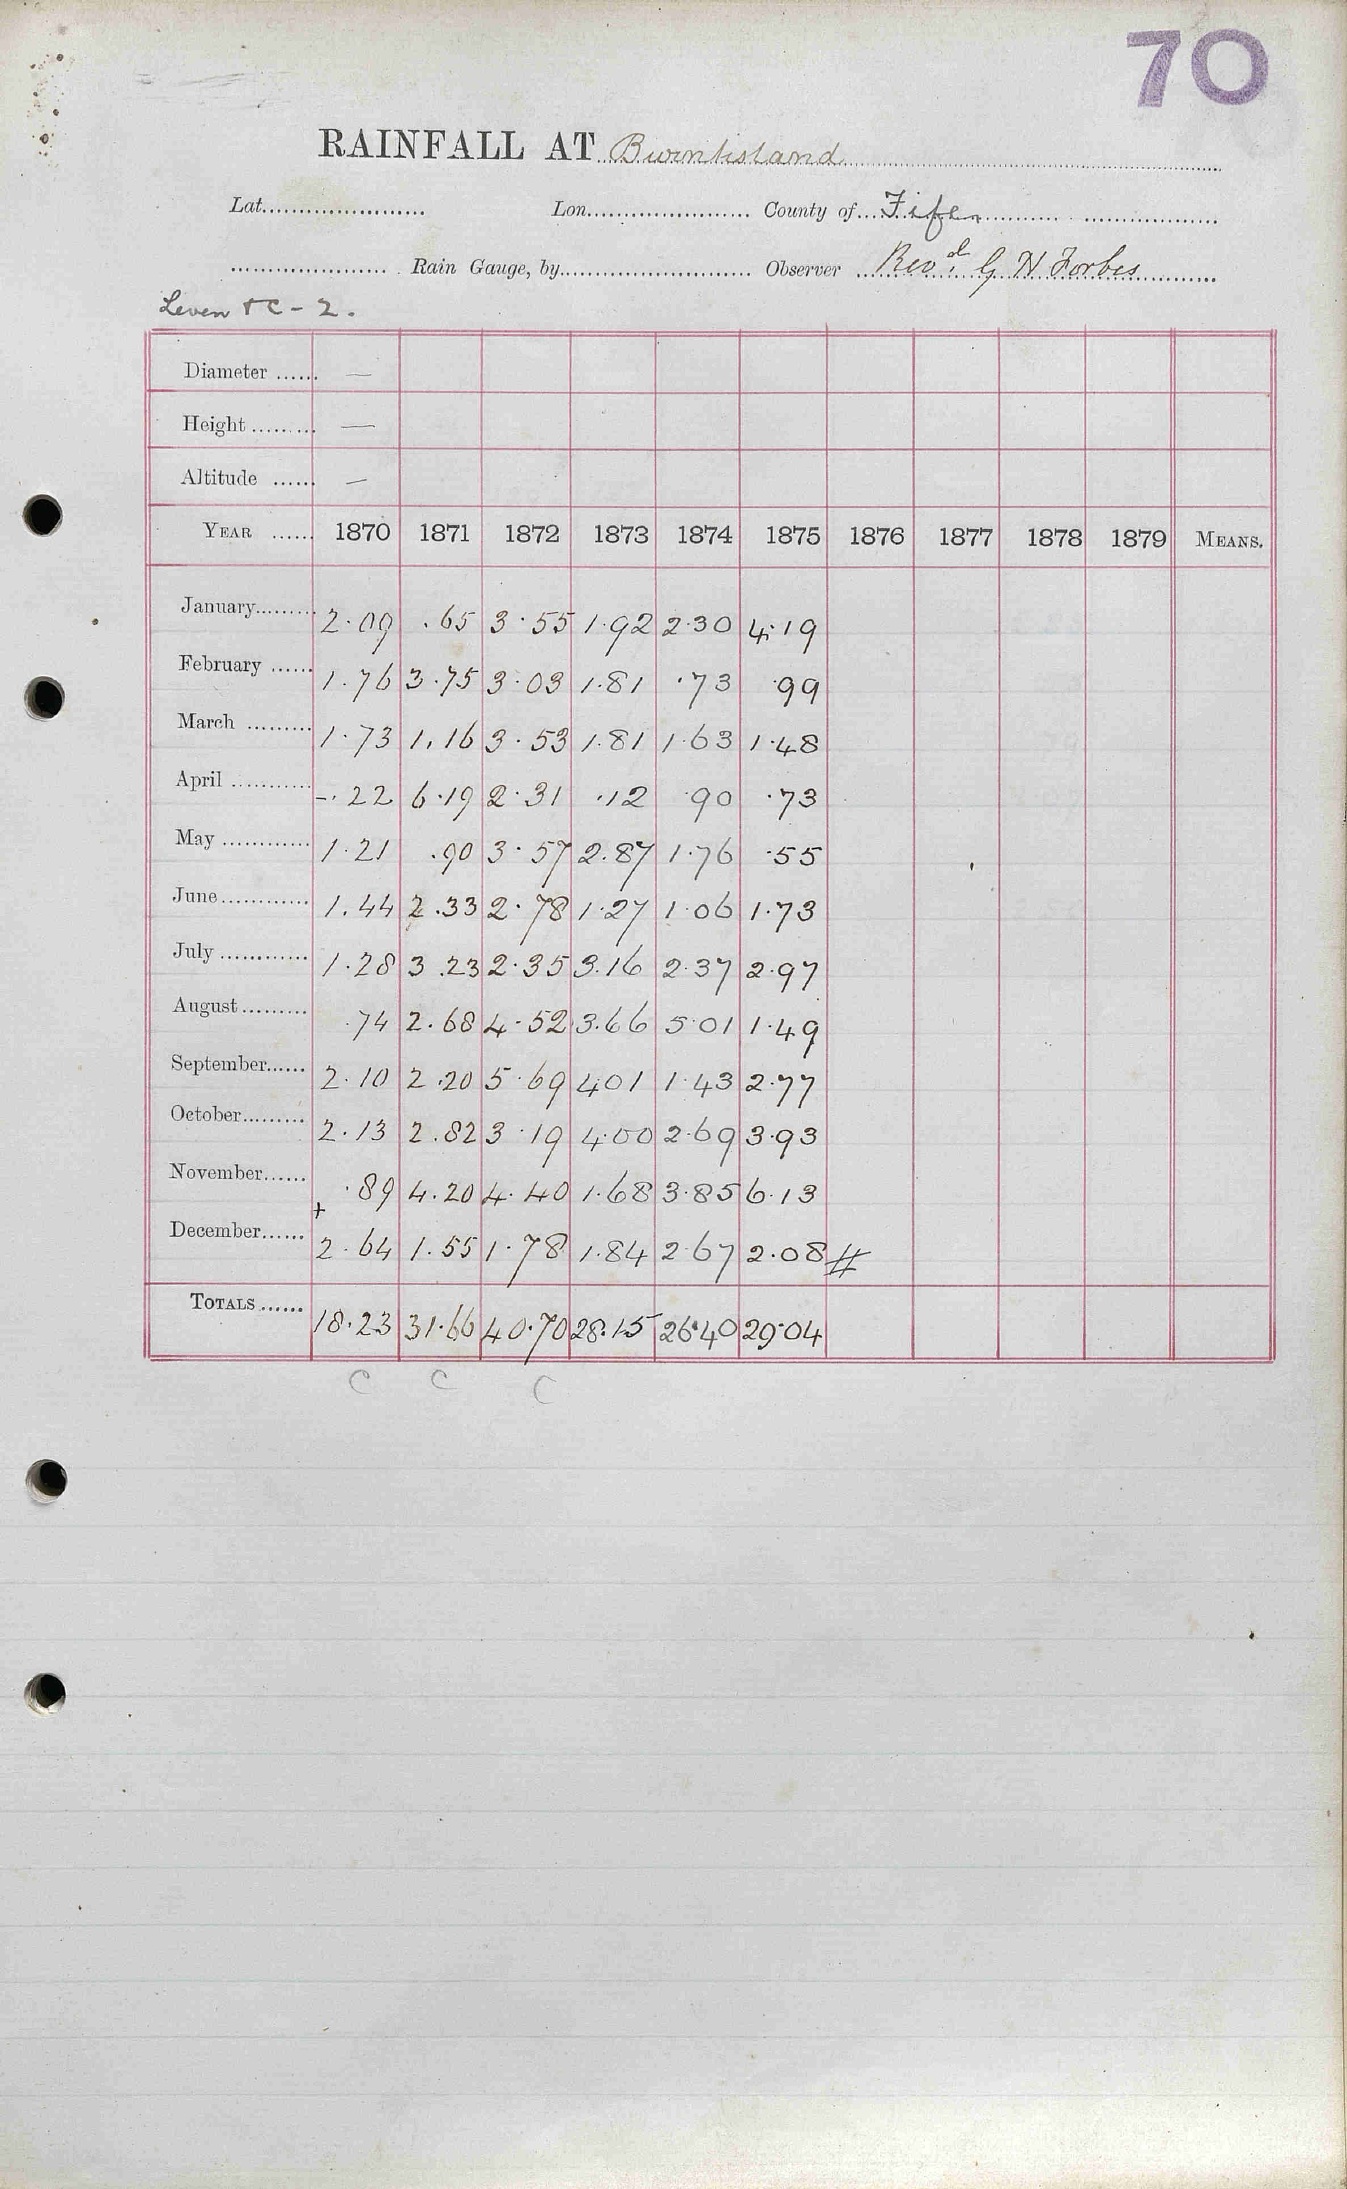 70
RAINFALL AT Burntisland
Lat. Lon. County of Fife
Rain Gauge, by Observer Revd. G H Forbes
Leven & C - 2.
Diameter —
Height —
Altitude —
YEAR 1870 1871 1872 1873 1874 1875 1876 1877 1878 1879 MEANS.
January 2.09 .65 3.55 1.92 2.30 4.19
February 1.76 3.75 3.03 1.81 .73 .99
March 1.73 1.16 3.53 1.81 1.63 1.48
April -.22 6.19 2.31 .12 .90 .73
May 1.21 .90 3.57 2.87 1.76 .55
June 1.44 2.33 2.78 1.27 1.06 1.73
July 1.28 3.23 2.35 3.16 2.37 2.97
August .74 2.68 4.52 3.66 5.01 1.49
September 2.10 2.20 5.69 4.01 1.43 2.77
October 2.13 2.82 3.19 4.00 2.69 3.93
November .89 4.20 4.40 1.68 3.85 6.13
December + 2.64 1.55 1.78 1.84 2.67 2.08 #
TOTALS 18.23 31.66 40.70 28.15 26.40 29.04
C C C